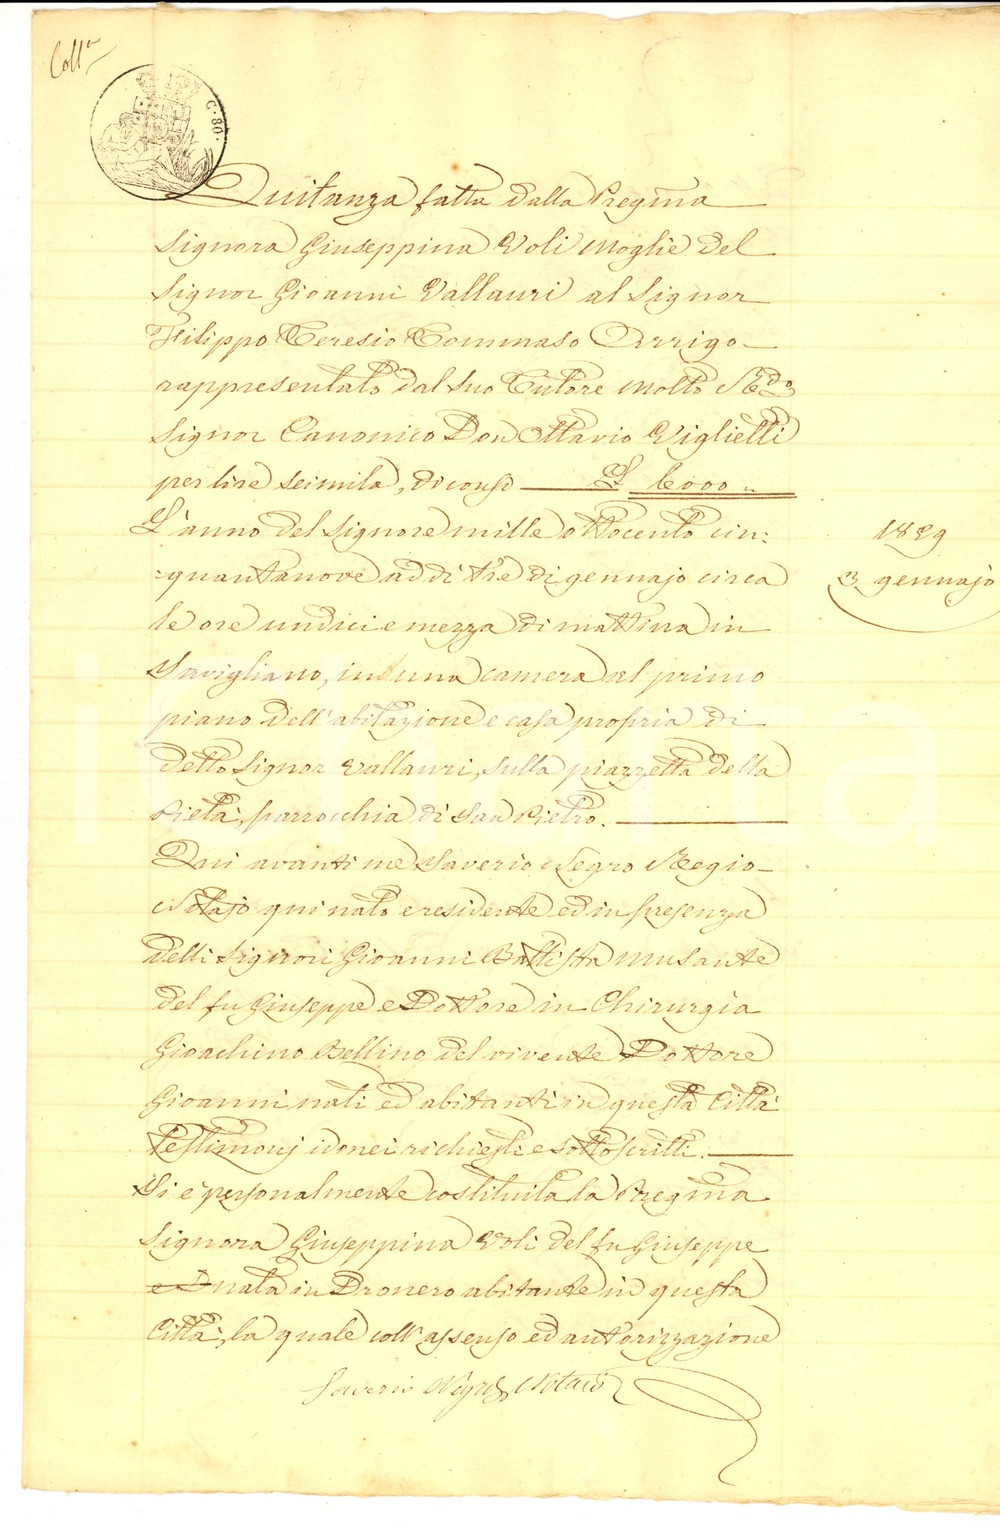 Coll.n
C. 80.
Quitanza fatta dalla Pregma
Signora Giuseppina Voli Moglie del
Signor Gioanni Vallauri al Signor
Filippo Teresio Tommaso Arrigo
rappresentato dal suo Tutore Molto Rdo
Signor Canonico Don Ottavio Viglietti
per lire seimila, diconsi L. 6000 "
L'anno del Signore mille ottocento cin:
:quantanove ad dì tre di gennajo circa
le ore undici e mezza di mattina in
Savigliano, in una camera al primo
piano dell'abitazione e casa propria di
detto Signor Vallauri, sulla piazzetta della
Pietà, parrocchia di San Pietro.
1859
3 gennajo
Qui avanti me Saverio Negro Regio
Notajo qui nato e residente ed in presenza
delli Signori Gioanni Battista Musante
del fu Giuseppe e Dottore in Chirurgia
Gioachino Bellino del vivente Dottore
Gioanni nati ed abitanti in questa Città
testimonj idonei richiesti e sottoscritti.
Si è personalmente costituita la Pregma
Signora Giuseppina Voli del fu Giuseppe
nata in Dronero abitante in questa
Città, la quale coll'assenso ed autorizzazione
Saverio Negro Notaio